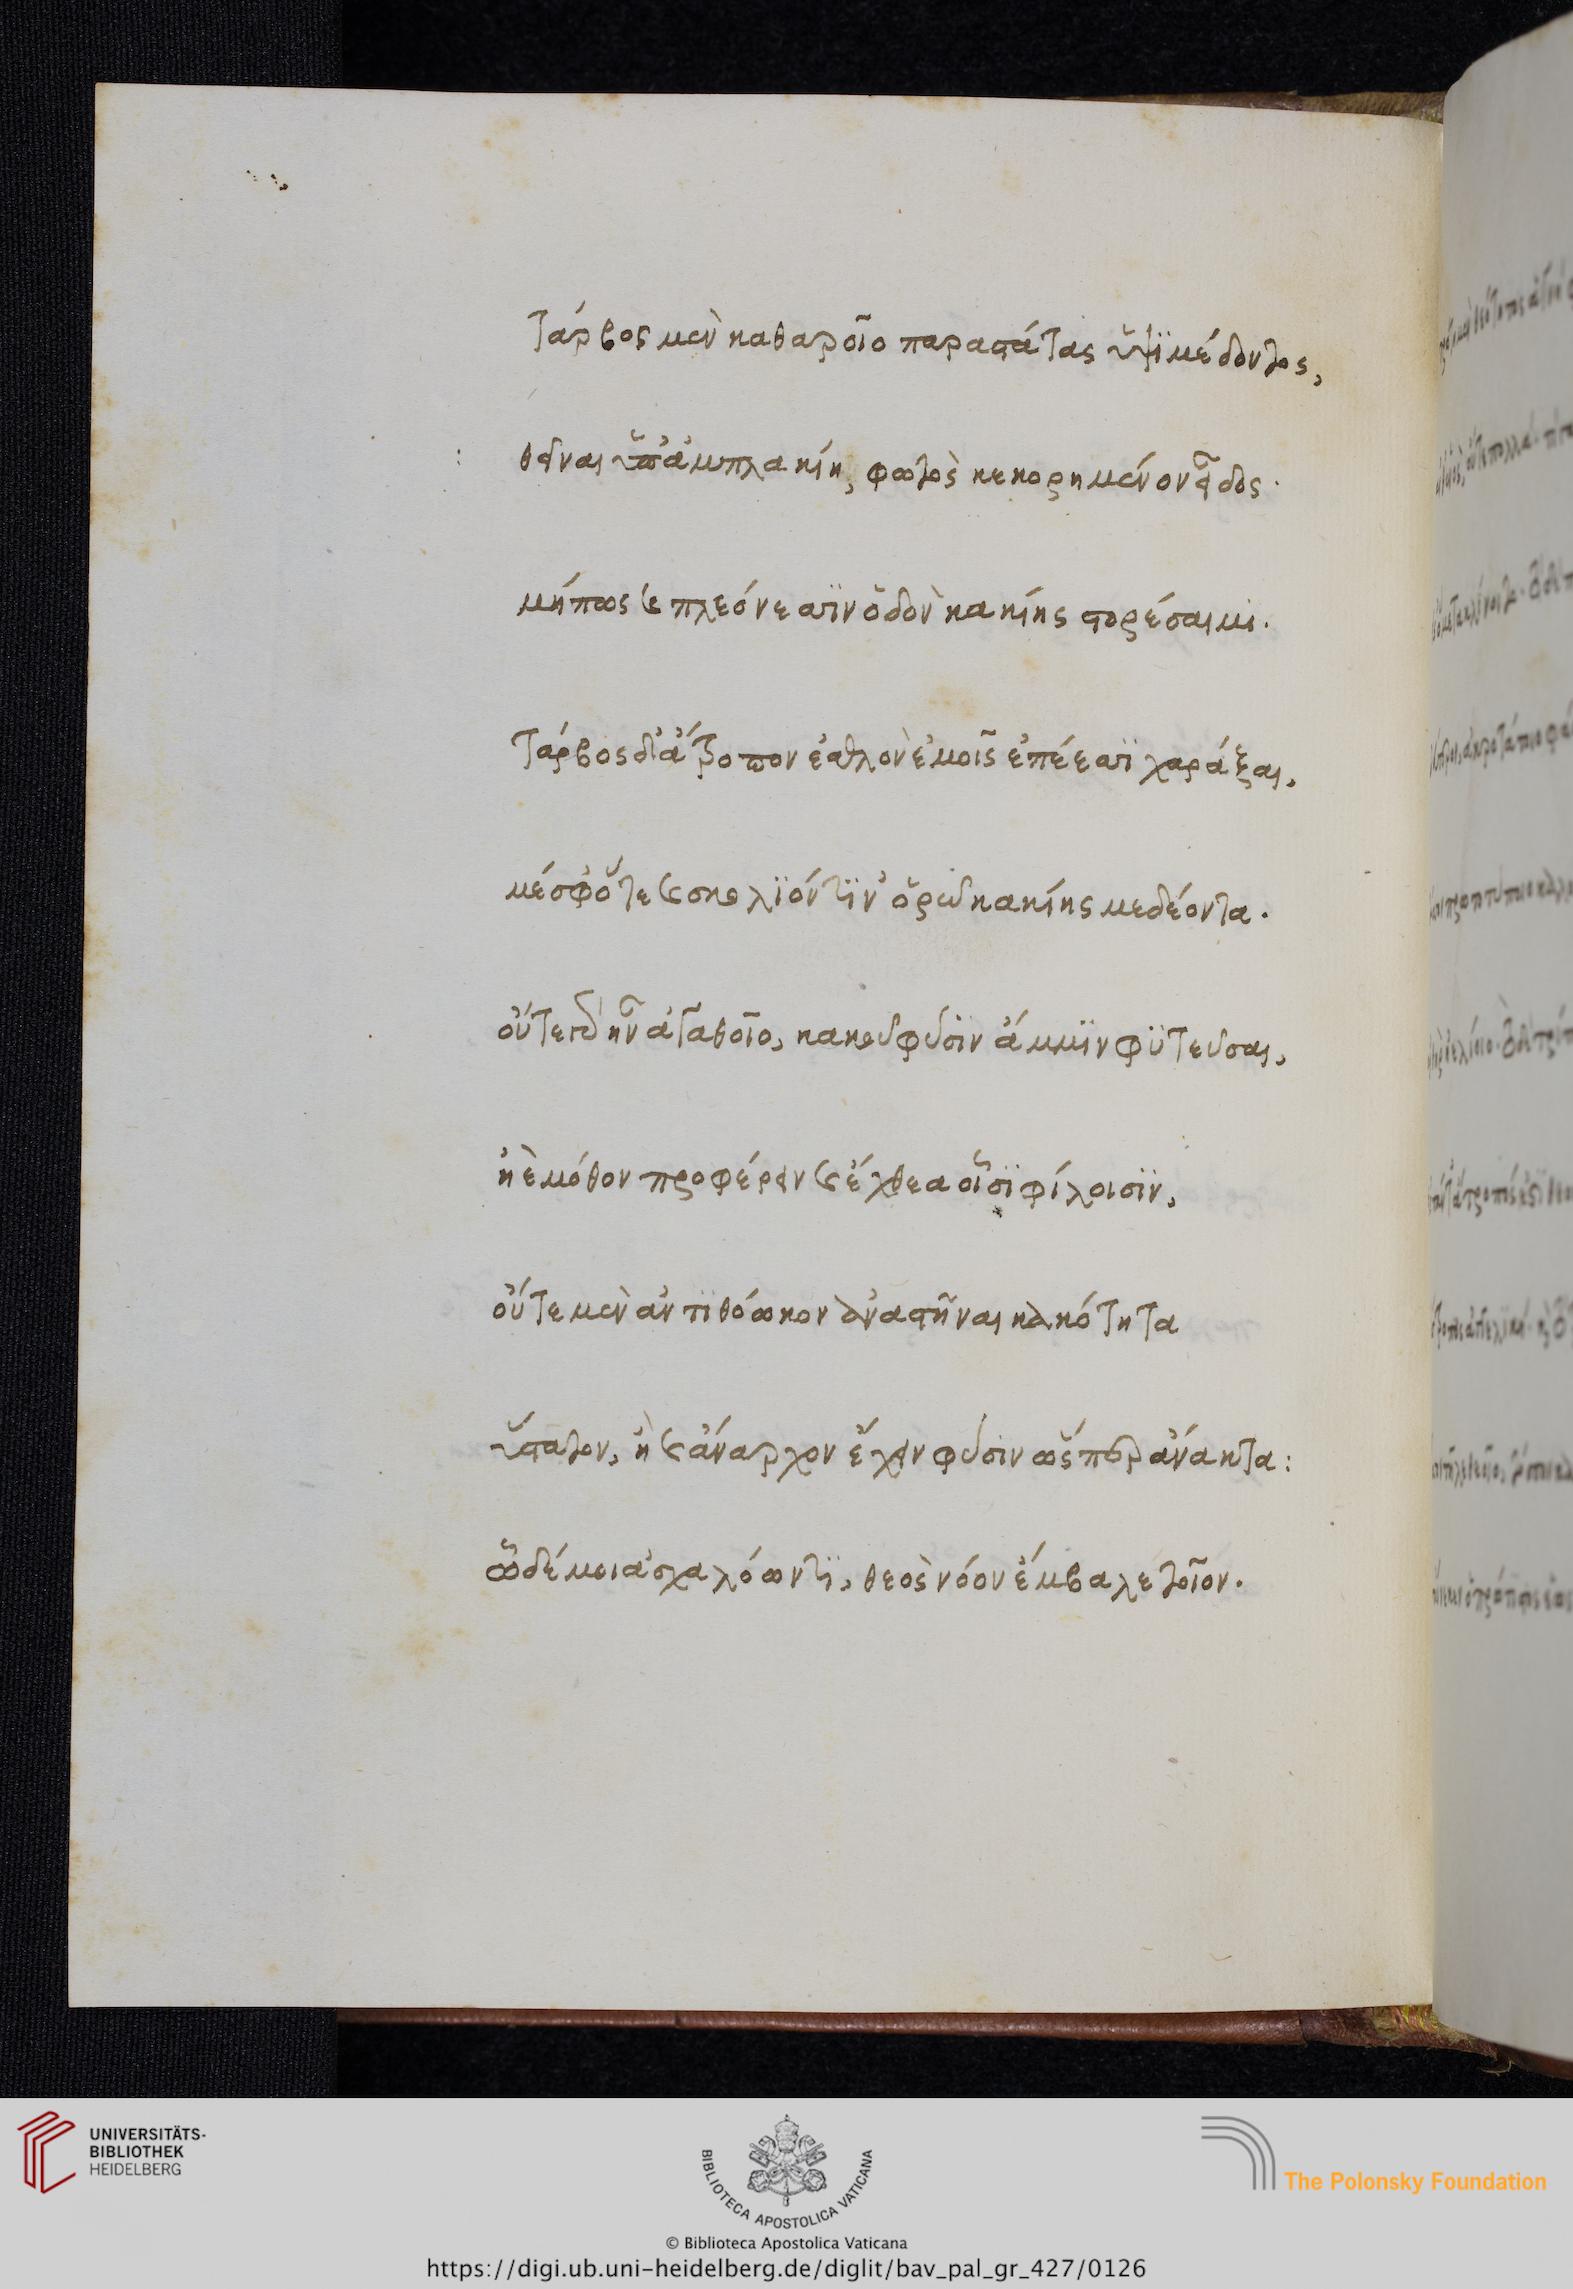 τάρβος μὲν καθαροῖο παραστάτας ὑψϊμέδοντος,
θεῖναι ὑπ' ἀμπλακίη, φωτὸς κεκορημένον εἶδος.
μήπως καὶ πλεόνεσσϊν ὁδὸν κακίης στορέσαιμι.
τάρβος δ' ἄτροπον ἐσθλὸν ἐμοῖς ἐπέεσσϊ χαράξαι,
μέσφ' ὅτε καὶ σκολϊόν τϊν' ὁρῶ κακίης μεδέοντα.
οὔτε γὰρ ἦν ἀγαθοῖο, κακοῦ φύσϊν ἄμμϊν φϋτεῦσαι,
ἠὲ μόθον προφέρειν καὶ ἔχθεα οἷσϊ φίλοισϊν,
οὔτε μὲν ἀντϊθόωκον ἀναστῆναι κακότητα
ὕστατον, ἢ καὶ ἄναρχον ἔχειν φύσϊν ὥσπερ ἄνακτα:
ὧδέ μοι ἀσχαλόωντϊ, θεὸς νόον ἔμβαλε τοῖον.
UNIVERSITÄTS-
BIBLIOTHEK
HEIDELBERG
BIBLIOTECA APOSTOLICA VATICANA
© Biblioteca Apostolica Vaticana
The Polonsky Foundation
https://digi.ub.uni-heidelberg.de/diglit/bav_pal_gr_427/0126